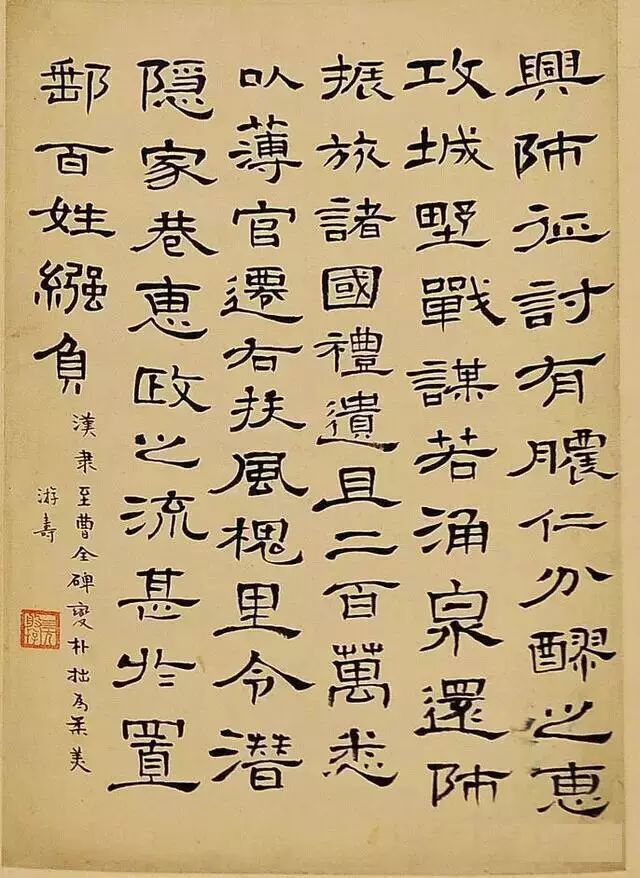 興師征討有膿仁分醪之恵
攻城墅戰謀若涌泉還師
振旅諸國禮遺且二百萬悉
以薄官遷右扶風槐里令潛
隐家巷恵政之流甚於置
郵百姓繦負
漢隶至曹全碑變朴拙為柔美
游壽